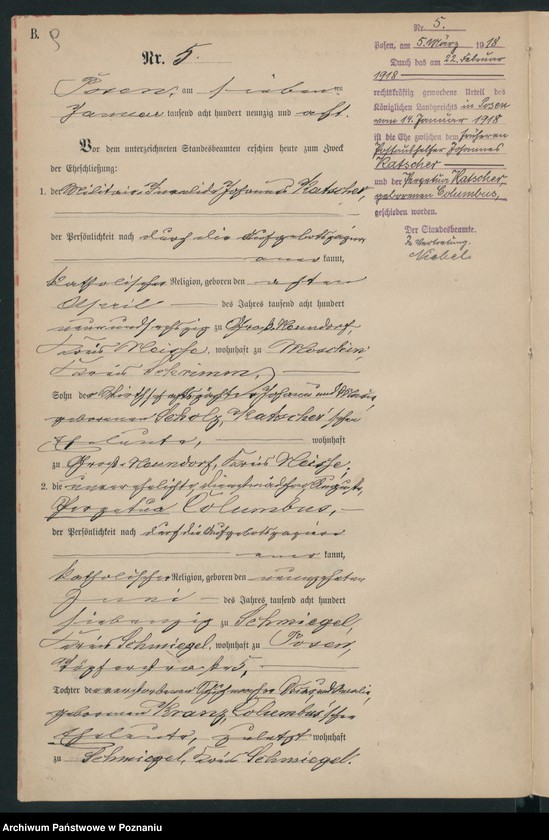 B.
Nr. 5.
Posen, am siebenten
Januar tausend acht hundert neunzig und acht.
Vor dem unterzeichneten Standesbeamten erschien heute zum Zweck
der Eheschließung:
1. der Militair-Invalide Johannes Katscher,
der Persönlichkeit nach durch die Aufgebotspapiere
kannt,
katholischer Religion, geboren den achten
April des Jahres tausend acht hundert
neunundsechzig zu Groß-Neundorf,
Kreis Neisse, wohnhaft zu Moschin
Kreis Schrimm,
Sohn des Johann und
geborenen Scholz, Katscher'schen
Eheleute, wohnhaft
zu Groß-Neundorf, Kreis Neisse.
2. die unverehelichte
Perpetua Columbus,
der Persönlichkeit nach durch die Aufgebotspapiere
kannt,
katholischer Religion, geboren den neunzehnten
Juni des Jahres tausend acht hundert
siebenzig zu Schmiegel,
Kreis Schmiegel, wohnhaft zu Posen,
Töpferstraße 5,
Tochter der verstorbenen und
geborenen Kranz, Columbus'schen
Eheleute, zuletzt wohnhaft
zu Schmiegel, Kreis Schmiegel.
Nr. 5.
Posen, am 5. März 1918
Durch das am 22. Februar
1918
rechtskräftig gewordene Urteil des
Königlichen Landgerichts in Posen
vom 14. Januar 1918
ist die Ehe zwischen dem früheren
Posthelfer Johannes
Katscher
und der Perpetua Katscher
geborenen Columbus,
geschieden worden.
Der Standesbeamte.
In Vertretung.
Niebel
Archiwum Państwowe w Poznaniu
szukajwarchiwach.pl